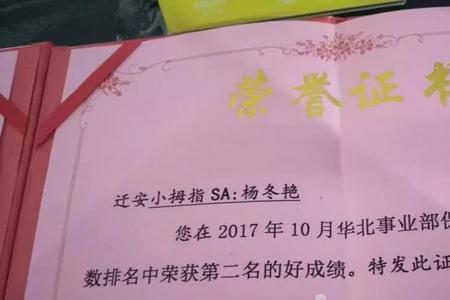 荣誉证书
迁安小拇指 SA:杨冬艳
您在 2017 年 10 月华北事业部保
数排名中荣获第二名的好成绩。特发此证